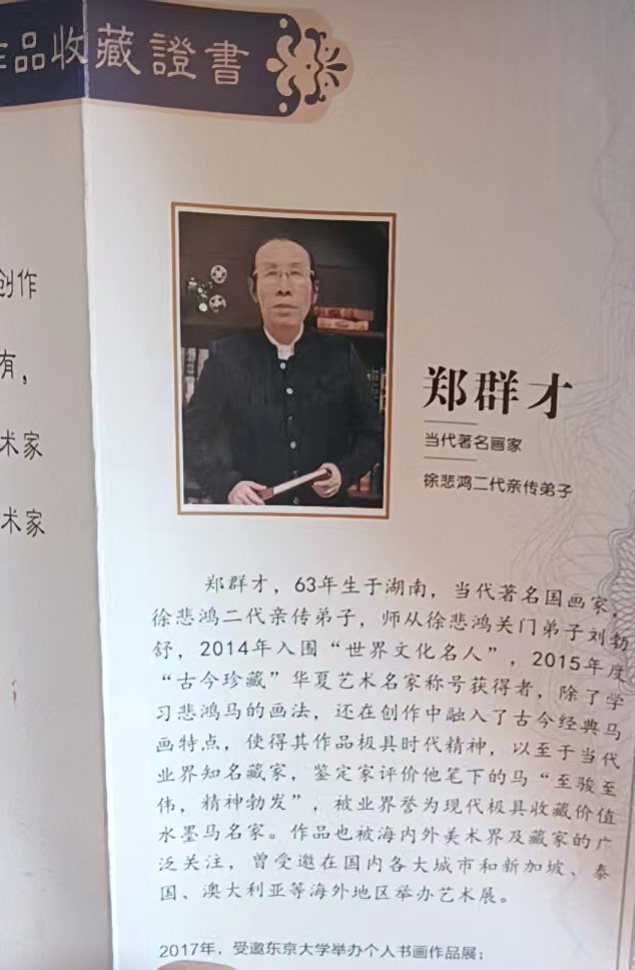 作品收藏證書
创作
有，
术家
术家
郑群才
当代著名画家
徐悲鸿二代亲传弟子
郑群才，63年生于湖南，当代著名国画家，
徐悲鸿二代亲传弟子，师从徐悲鸿关门弟子刘勃
舒，2014年入围“世界文化名人”，2015年度
“古今珍藏”华夏艺术名家称号获得者，除了学
习悲鸿马的画法，还在创作中融入了古今经典马
画特点，使得其作品极具时代精神，以至于当代
业界知名藏家，鉴定家评价他笔下的马“至骏至
伟，精神勃发”，被业界誉为现代极具收藏价值
水墨马名家。作品也被海内外美术界及藏家的广
泛关注，曾受邀在国内各大城市和新加坡、泰
国、澳大利亚等海外地区举办艺术展。
2017年，受邀东京大学举办个人书画作品展；